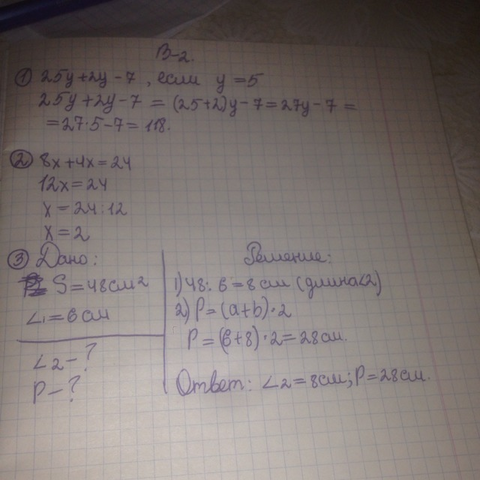 В-2.
① 25y+2y-7, если y=5
25y+2y-7 = (25+2)y-7=27y-7=
=27·5-7=118.
② 8x+4x=24
12x=24
x=24:12
x=2
③ Дано:
S=48см²
∠1=6см
∠2-?
P-?
Решение:
1) 48:6=8см (длина∠2)
2) P=(a+b)·2
P=(6+8)·2=28см.
Ответ: ∠2=8см; P=28см.